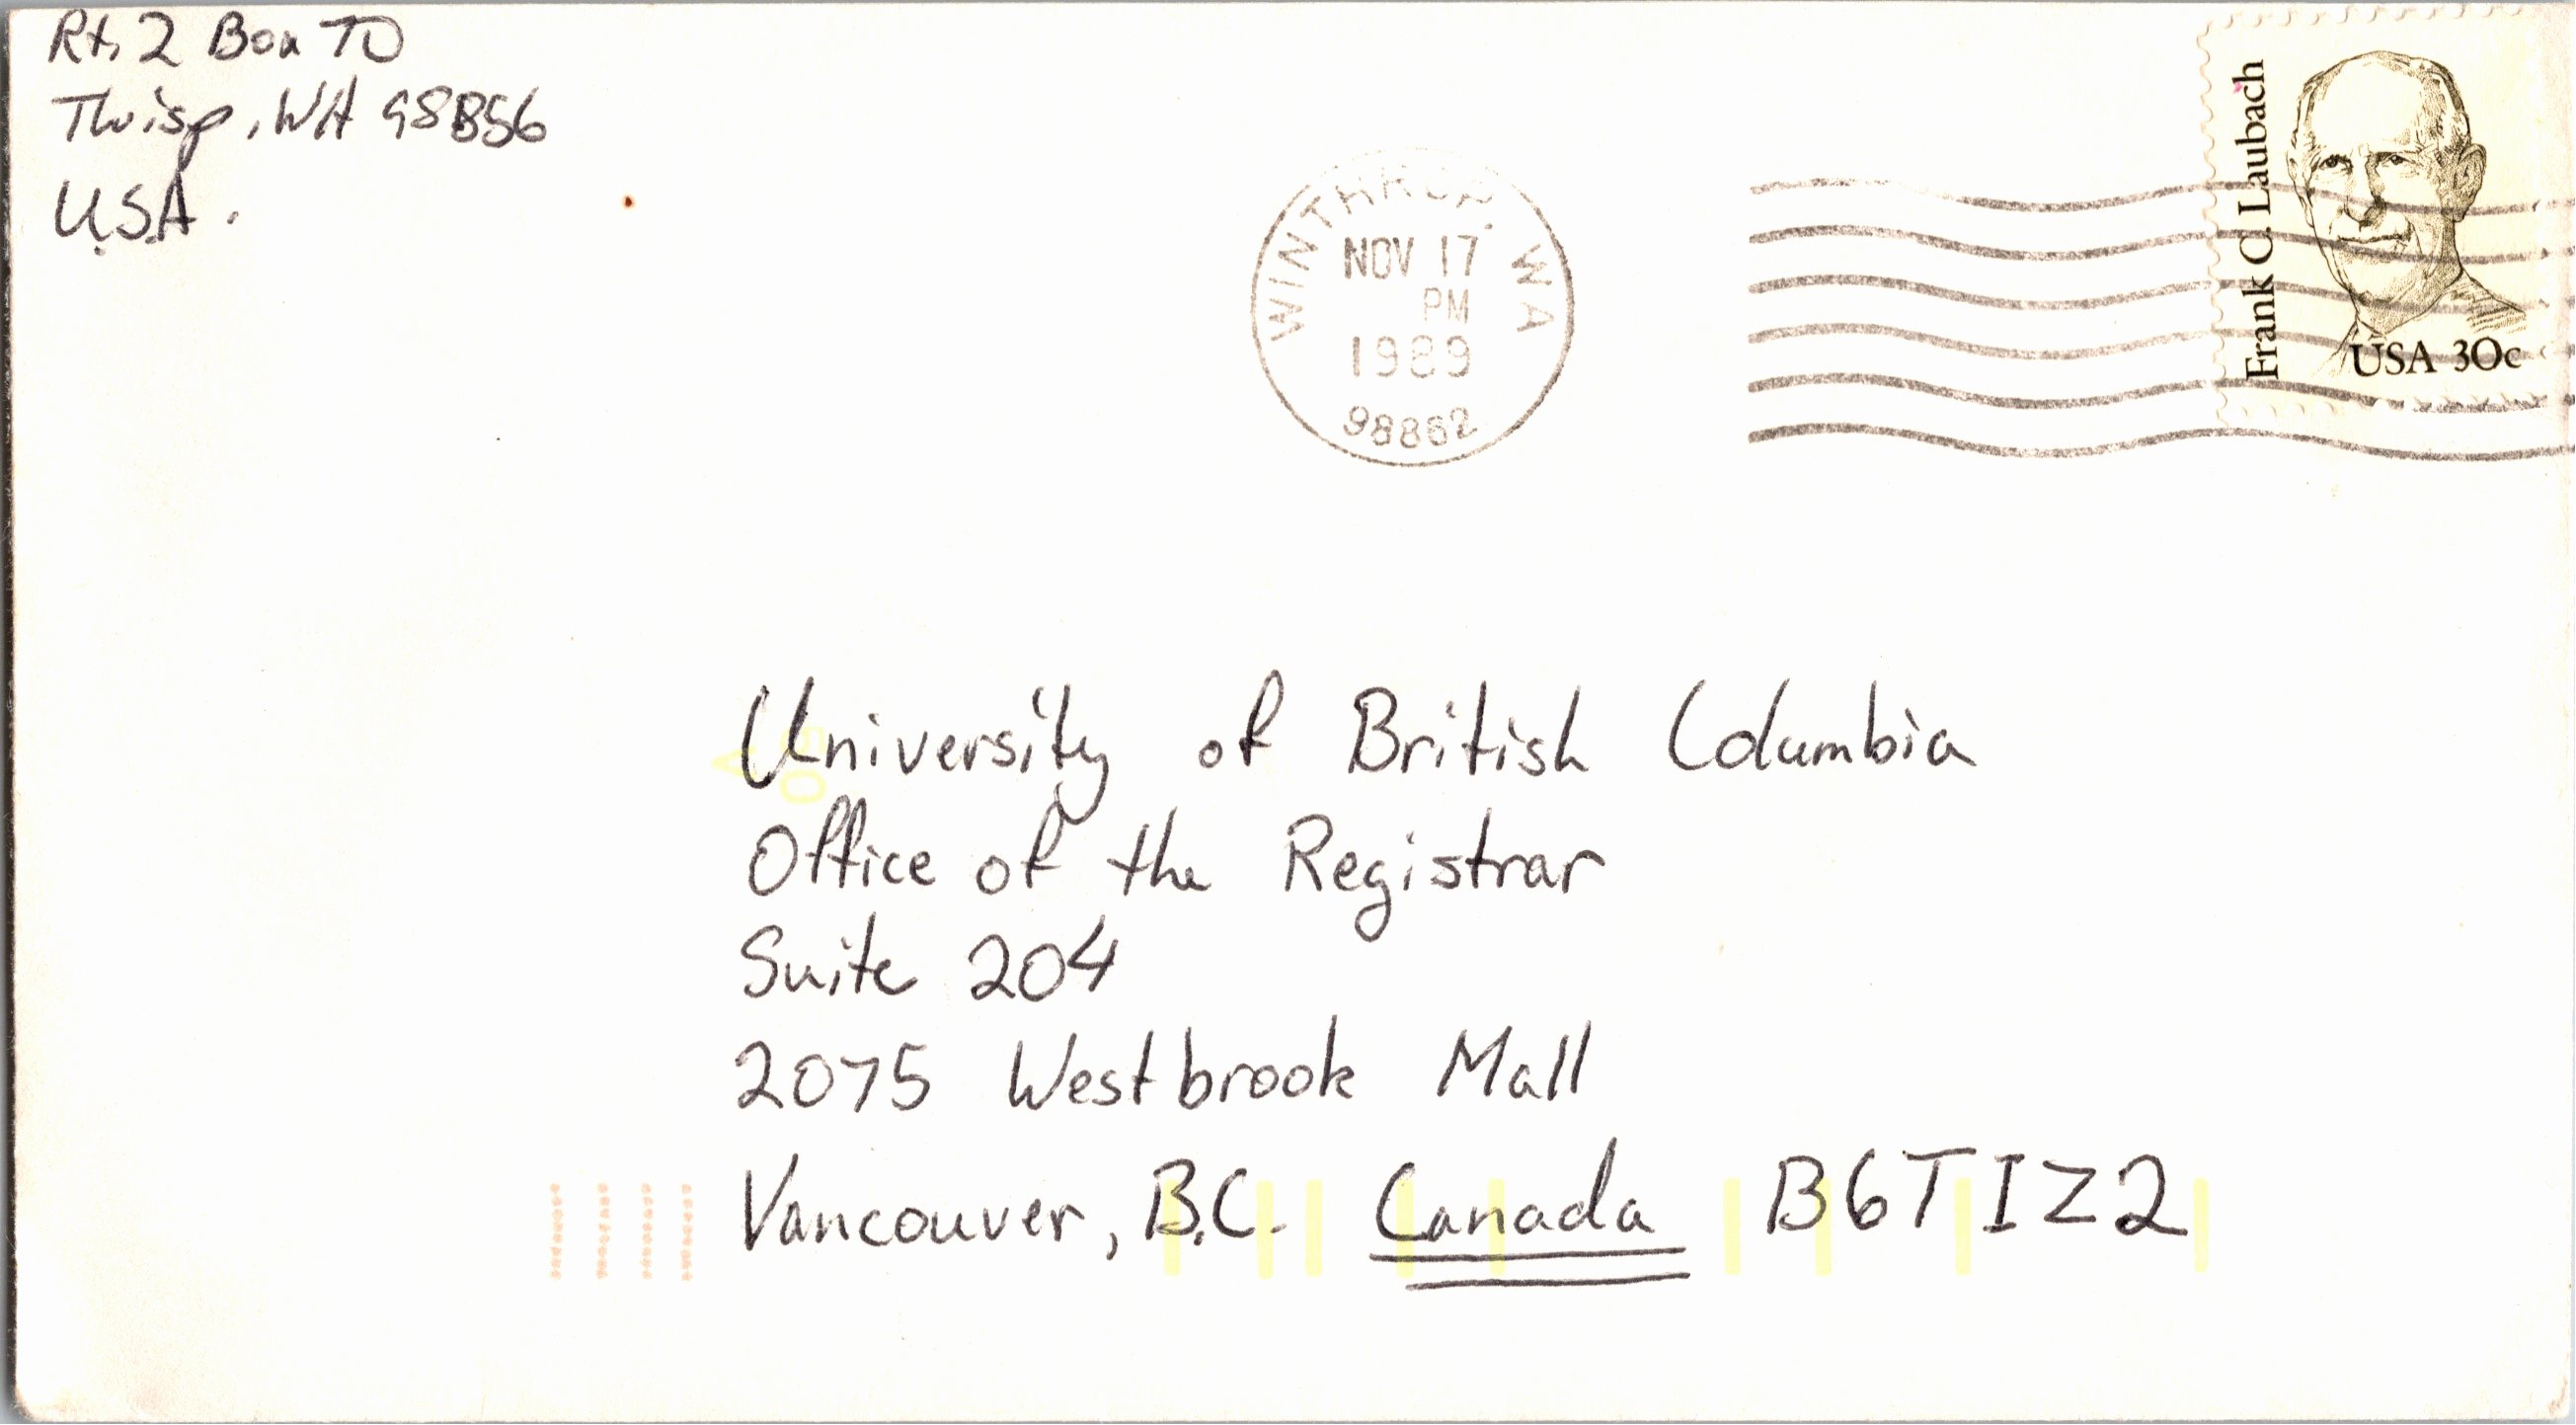 Rt. 2 Box 7D
Twisp, WA 98856
U.S.A.
WINTHROP, WA
NOV 17
PM
1989
98862
Frank C. Laubach
USA 30c
University of British Columbia
Office of the Registrar
Suite 204
2075 Westbrook Mall
Vancouver, B.C. Canada B6T1Z2